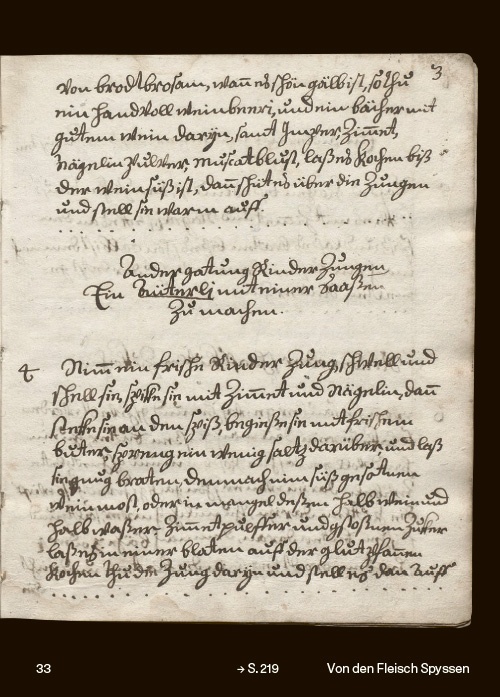 3
von brodtbrosam, wañ es schön gälb ist, so thu
ein handvoll weinbeeri, und ein bächer mit
gutem wein daryn, sambt Imper, Zimmet,
Nägelin Pulver, Muscatblust, laß es kochen biß
der wein süß ist, dañ schüt es über die Zungen
und stell sie warm auff.
Ander gatung Rinder Zungen
Ein Büterlj mit einer saaßen
Zu machen.
4
Nimm ein frische Rinder Zung, schwell und
schell sie, spike sie mit Zimmet und Nägelin, dañ
steke sie an den spiß, begieße sie mit frischem
büter, spreng ein wenig saltz darüber und laß
sie gnug braten, demnach nim süß gesotnen
weinmost, oder in mangel deßen halb wein und
halb waßer, Zimmetpulffer und gstoßnen Zuker
laß es in einer blaten auff der glutpfannen
kochen thu die Zung daryn und stell es dan auff
33
→ S. 219
Von den Fleisch Spyssen